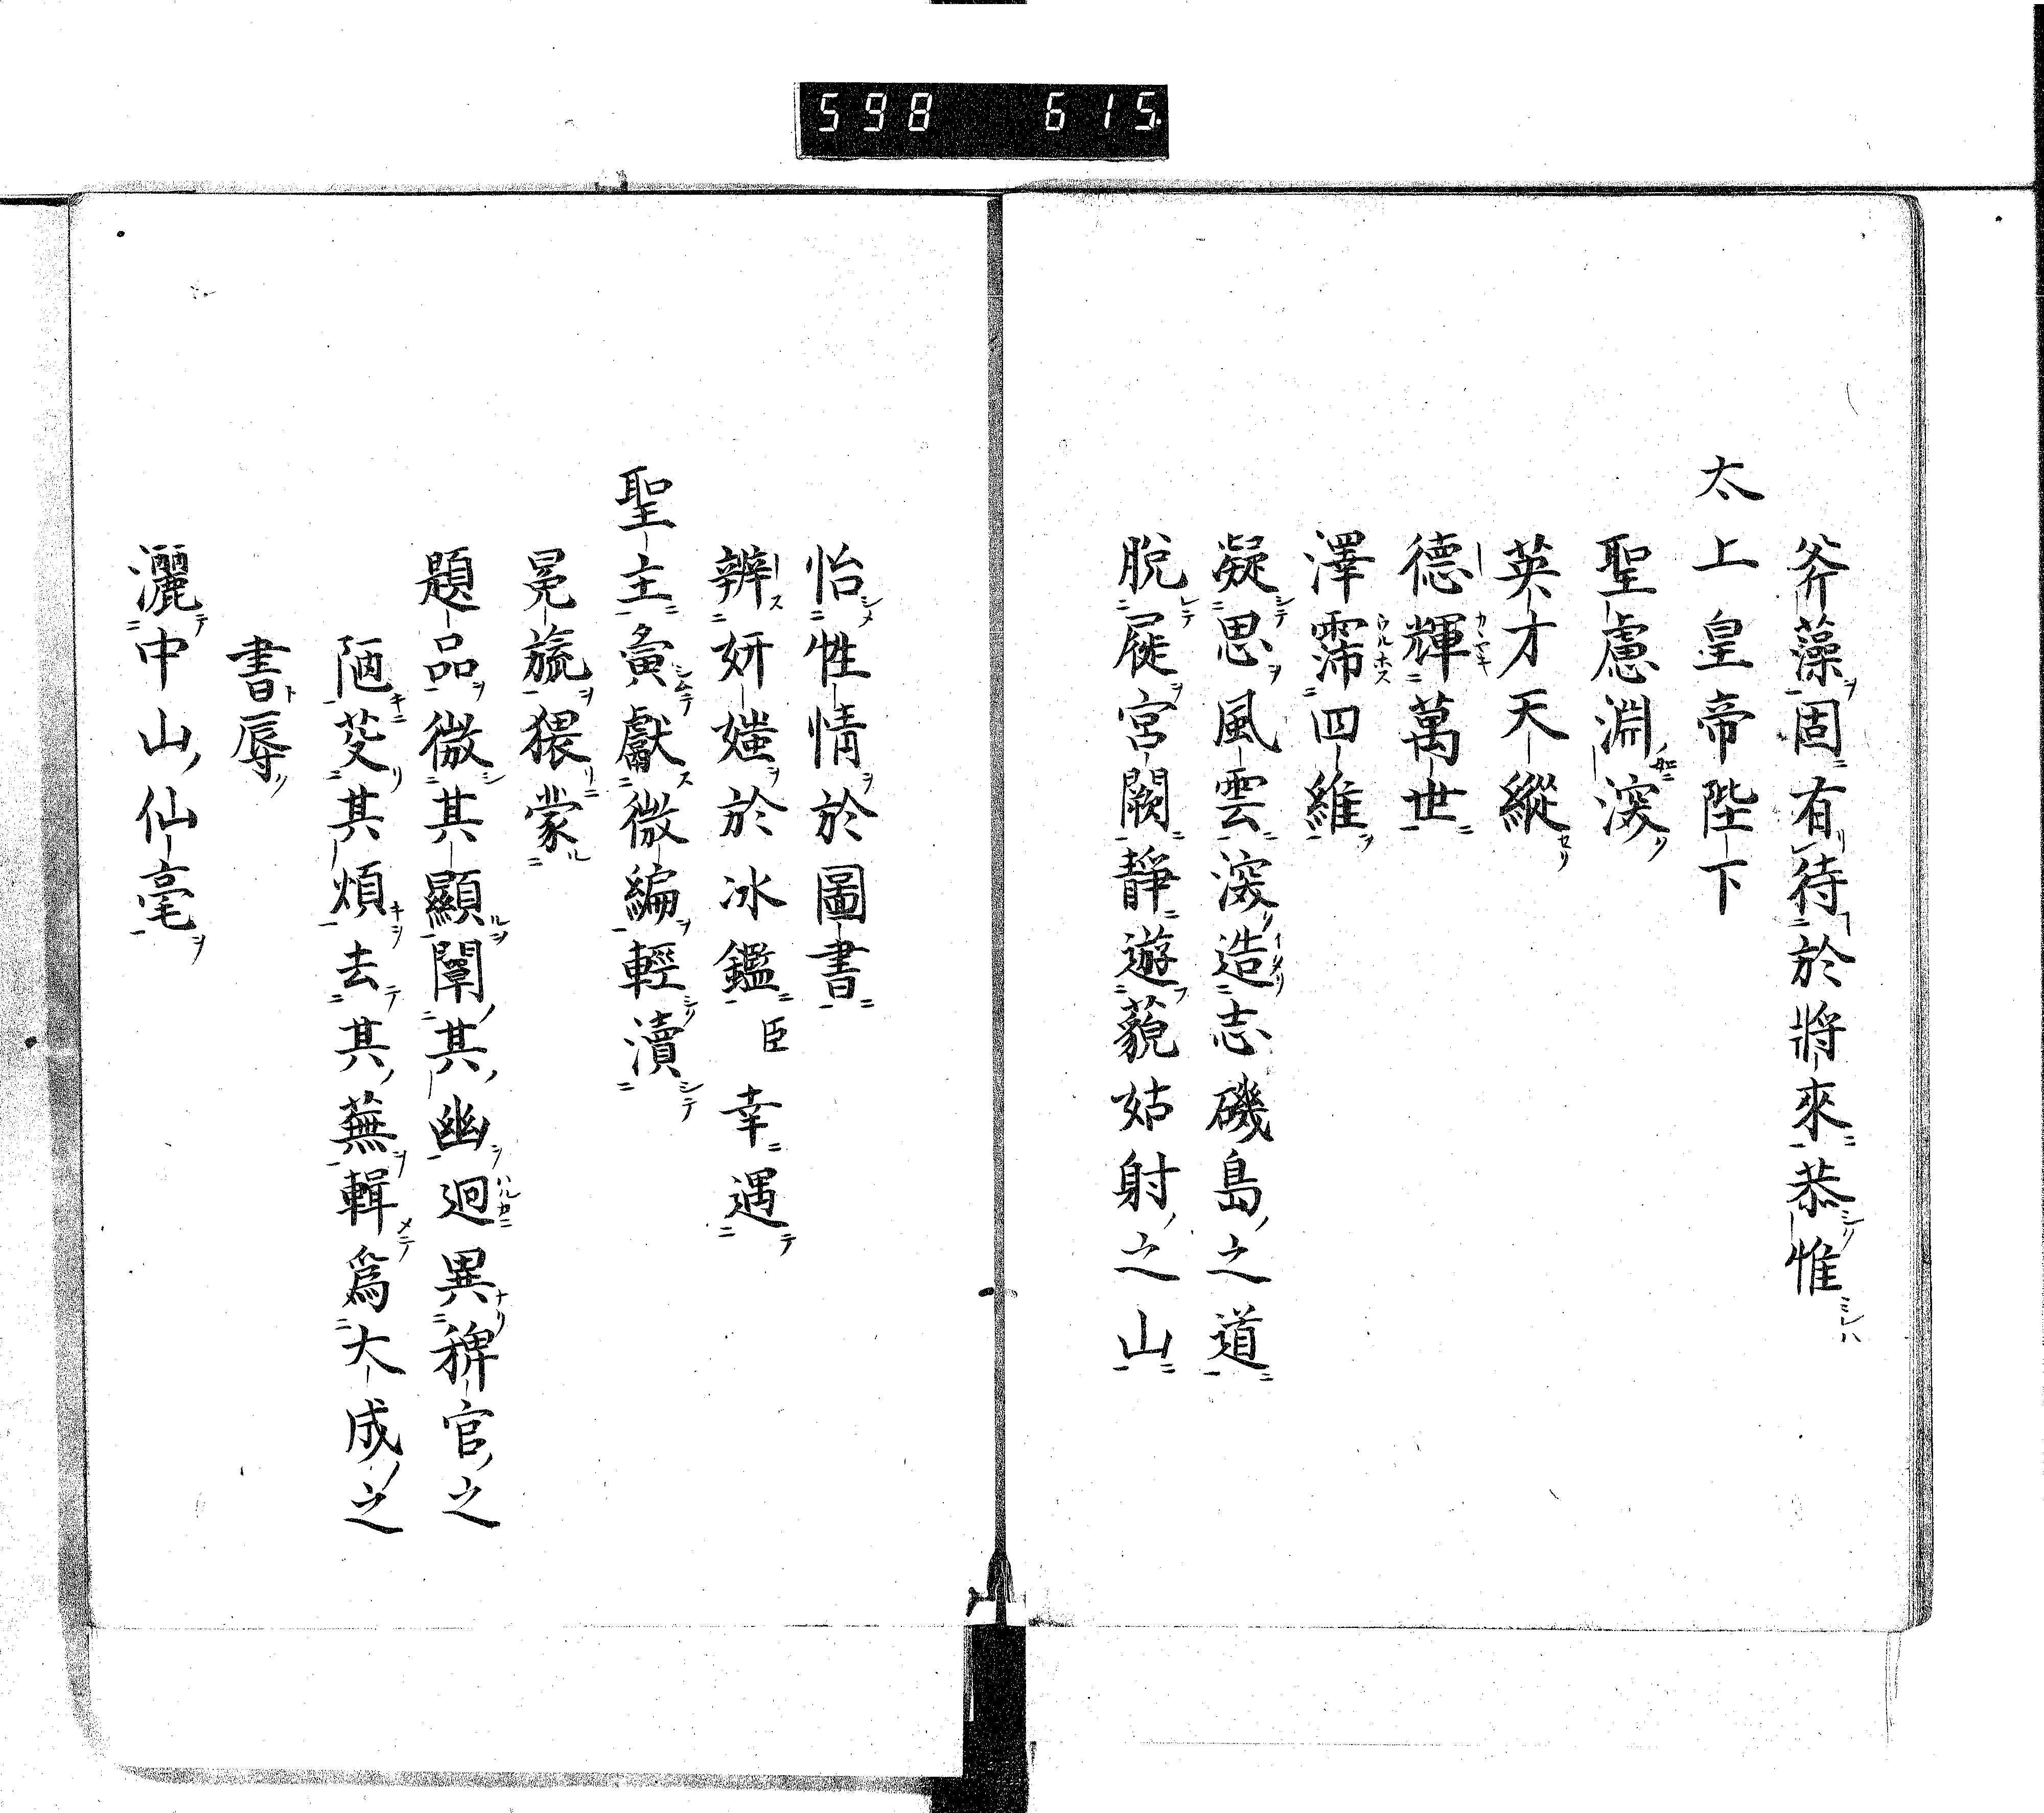 598 615
斧藻固有待於將來恭惟
太上皇帝陛下
聖慮淵深
英才天縱
德輝萬世
澤霈四維
凝思風雲深造志磯島之道
脫屣宮闕靜遊藐姑射之山
怡性情於圖書
辨妍媸於冰鑑臣幸遇
聖主夤獻微編輕瀆
冕旒猥蒙
題品微其顯闡其幽迥異稗官之
陋芟其煩去其蕪輯爲大成之
書辱
灑中山仙毫